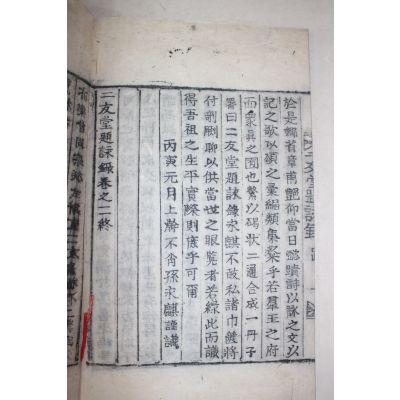 於是鄉省章甫艷仰當日懿蹟詩以詠之文以
記之歌以頌之彙編類集粲乎若羣玉之府
而衆具之園也繫以碣狀二通合成一冊子
署曰二友堂題詠錄永麒不敢私諸巾篋將
付剞劂聊以供當世之眼覧者若緣此而識
得吾祖之生平實際則庶乎可爾
丙寅元月上澣不肖孫永麒謹識
二友堂題詠錄卷之二終
二友堂題詠錄